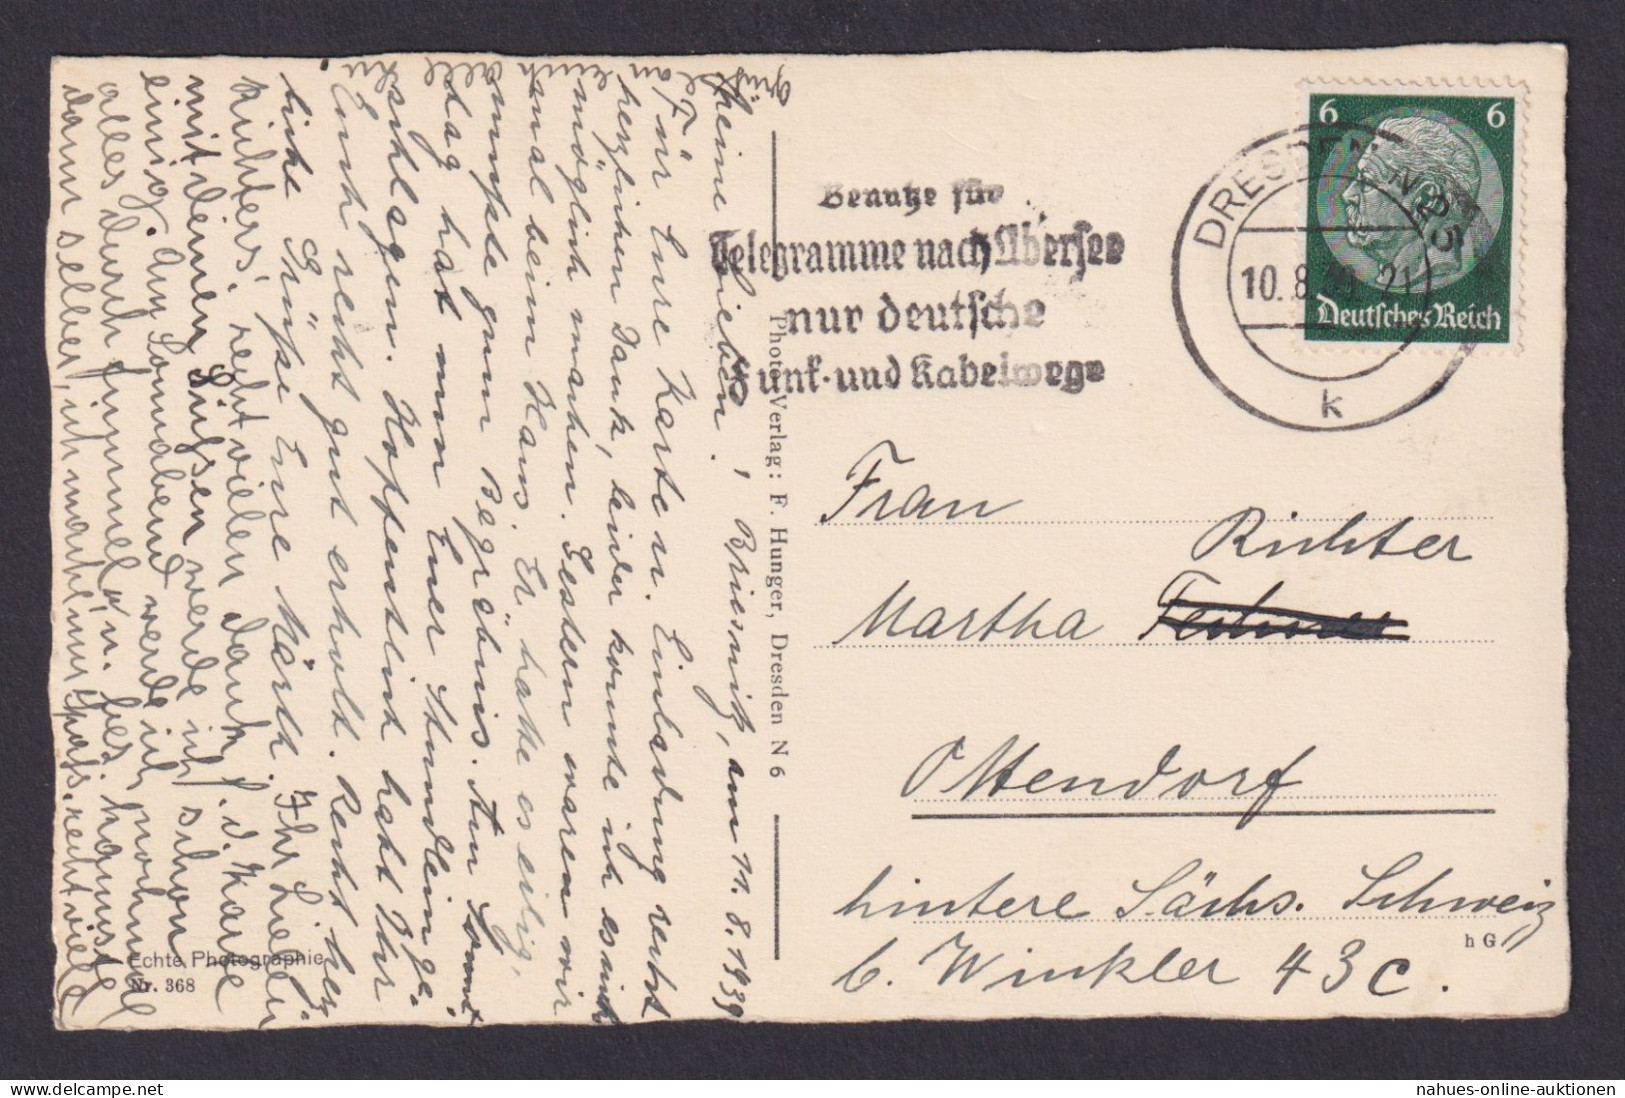 6 6
Deutsches Reich
DRESDEN
10.8.39. 21
k
Benutze für
Telegramme nach Übersee
nur deutsche
Funk- und Kabelwege
Frau
Richter
Martha
Ottendorf
hintere Sächs. Schweiz
b. Winkler 43c.
h G
Photo-Verlag: F. Hunger, Dresden N 6
Echte Photographie
Nr. 368
Briesnitz, am 11.8.1939
Meine Lieben!
Für Eure Karte u. Einladung recht
herzlichen Dank, leider konnte ich es nicht
möglich machen. Gestern waren wir
mal beim Hans. Er hatte es eilig,
musste zum Begräbnis. Am Sonn-
tag hat nun Euer Stündlein ge-
schlagen. Hoffentlich habt Ihr
Euch recht gut erholt. Recht herz-
liche Grüße Eure Märth. Ihr Lieben
Richters, recht vielen Dank f. d. Karte
mit deinen Grüßen werde ich schon
einig. Am Sonnabend werde ich nochmal
alles durch fummel'n. Hes. kannste
dann selber, ich mach' nur Spass. recht viele